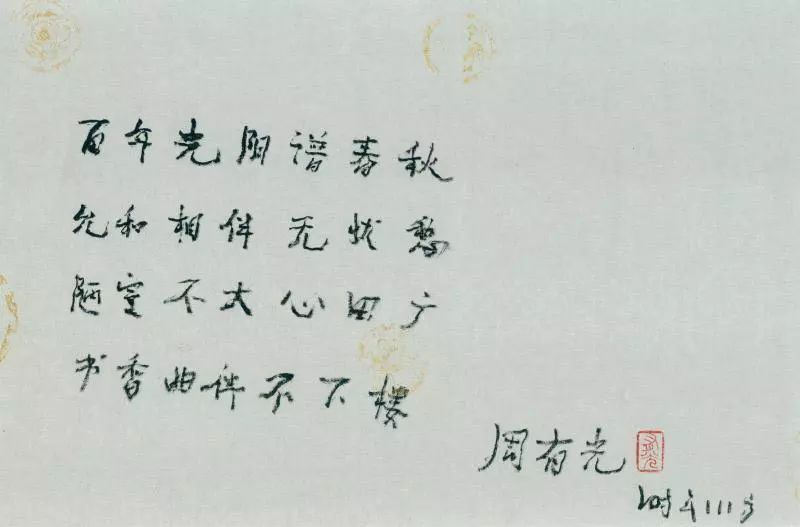 百年光阴谱春秋
允和相伴无忧愁
陋室不大心田广
书香曲伴不下楼
周有光
年111岁